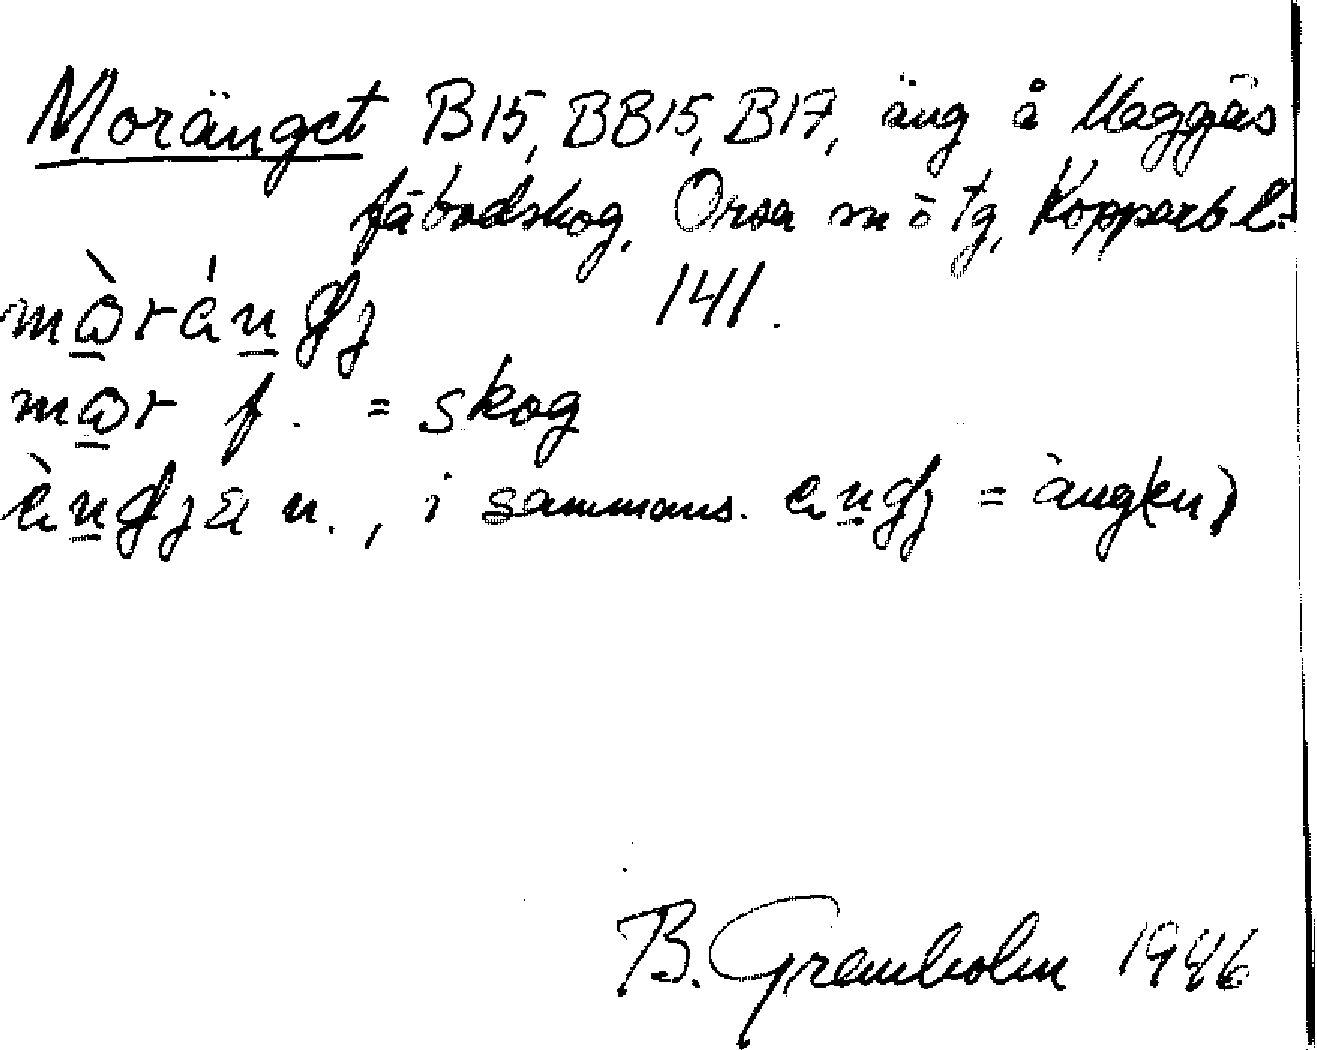 Moränget B15, BB15, B17, äng å Maggås
fäbodskog, Orsa m ö tg, Kopparb l.
141.
mòráng
mor f. = skog
n., i sammans. = äng(en)
B. Granholm 1946